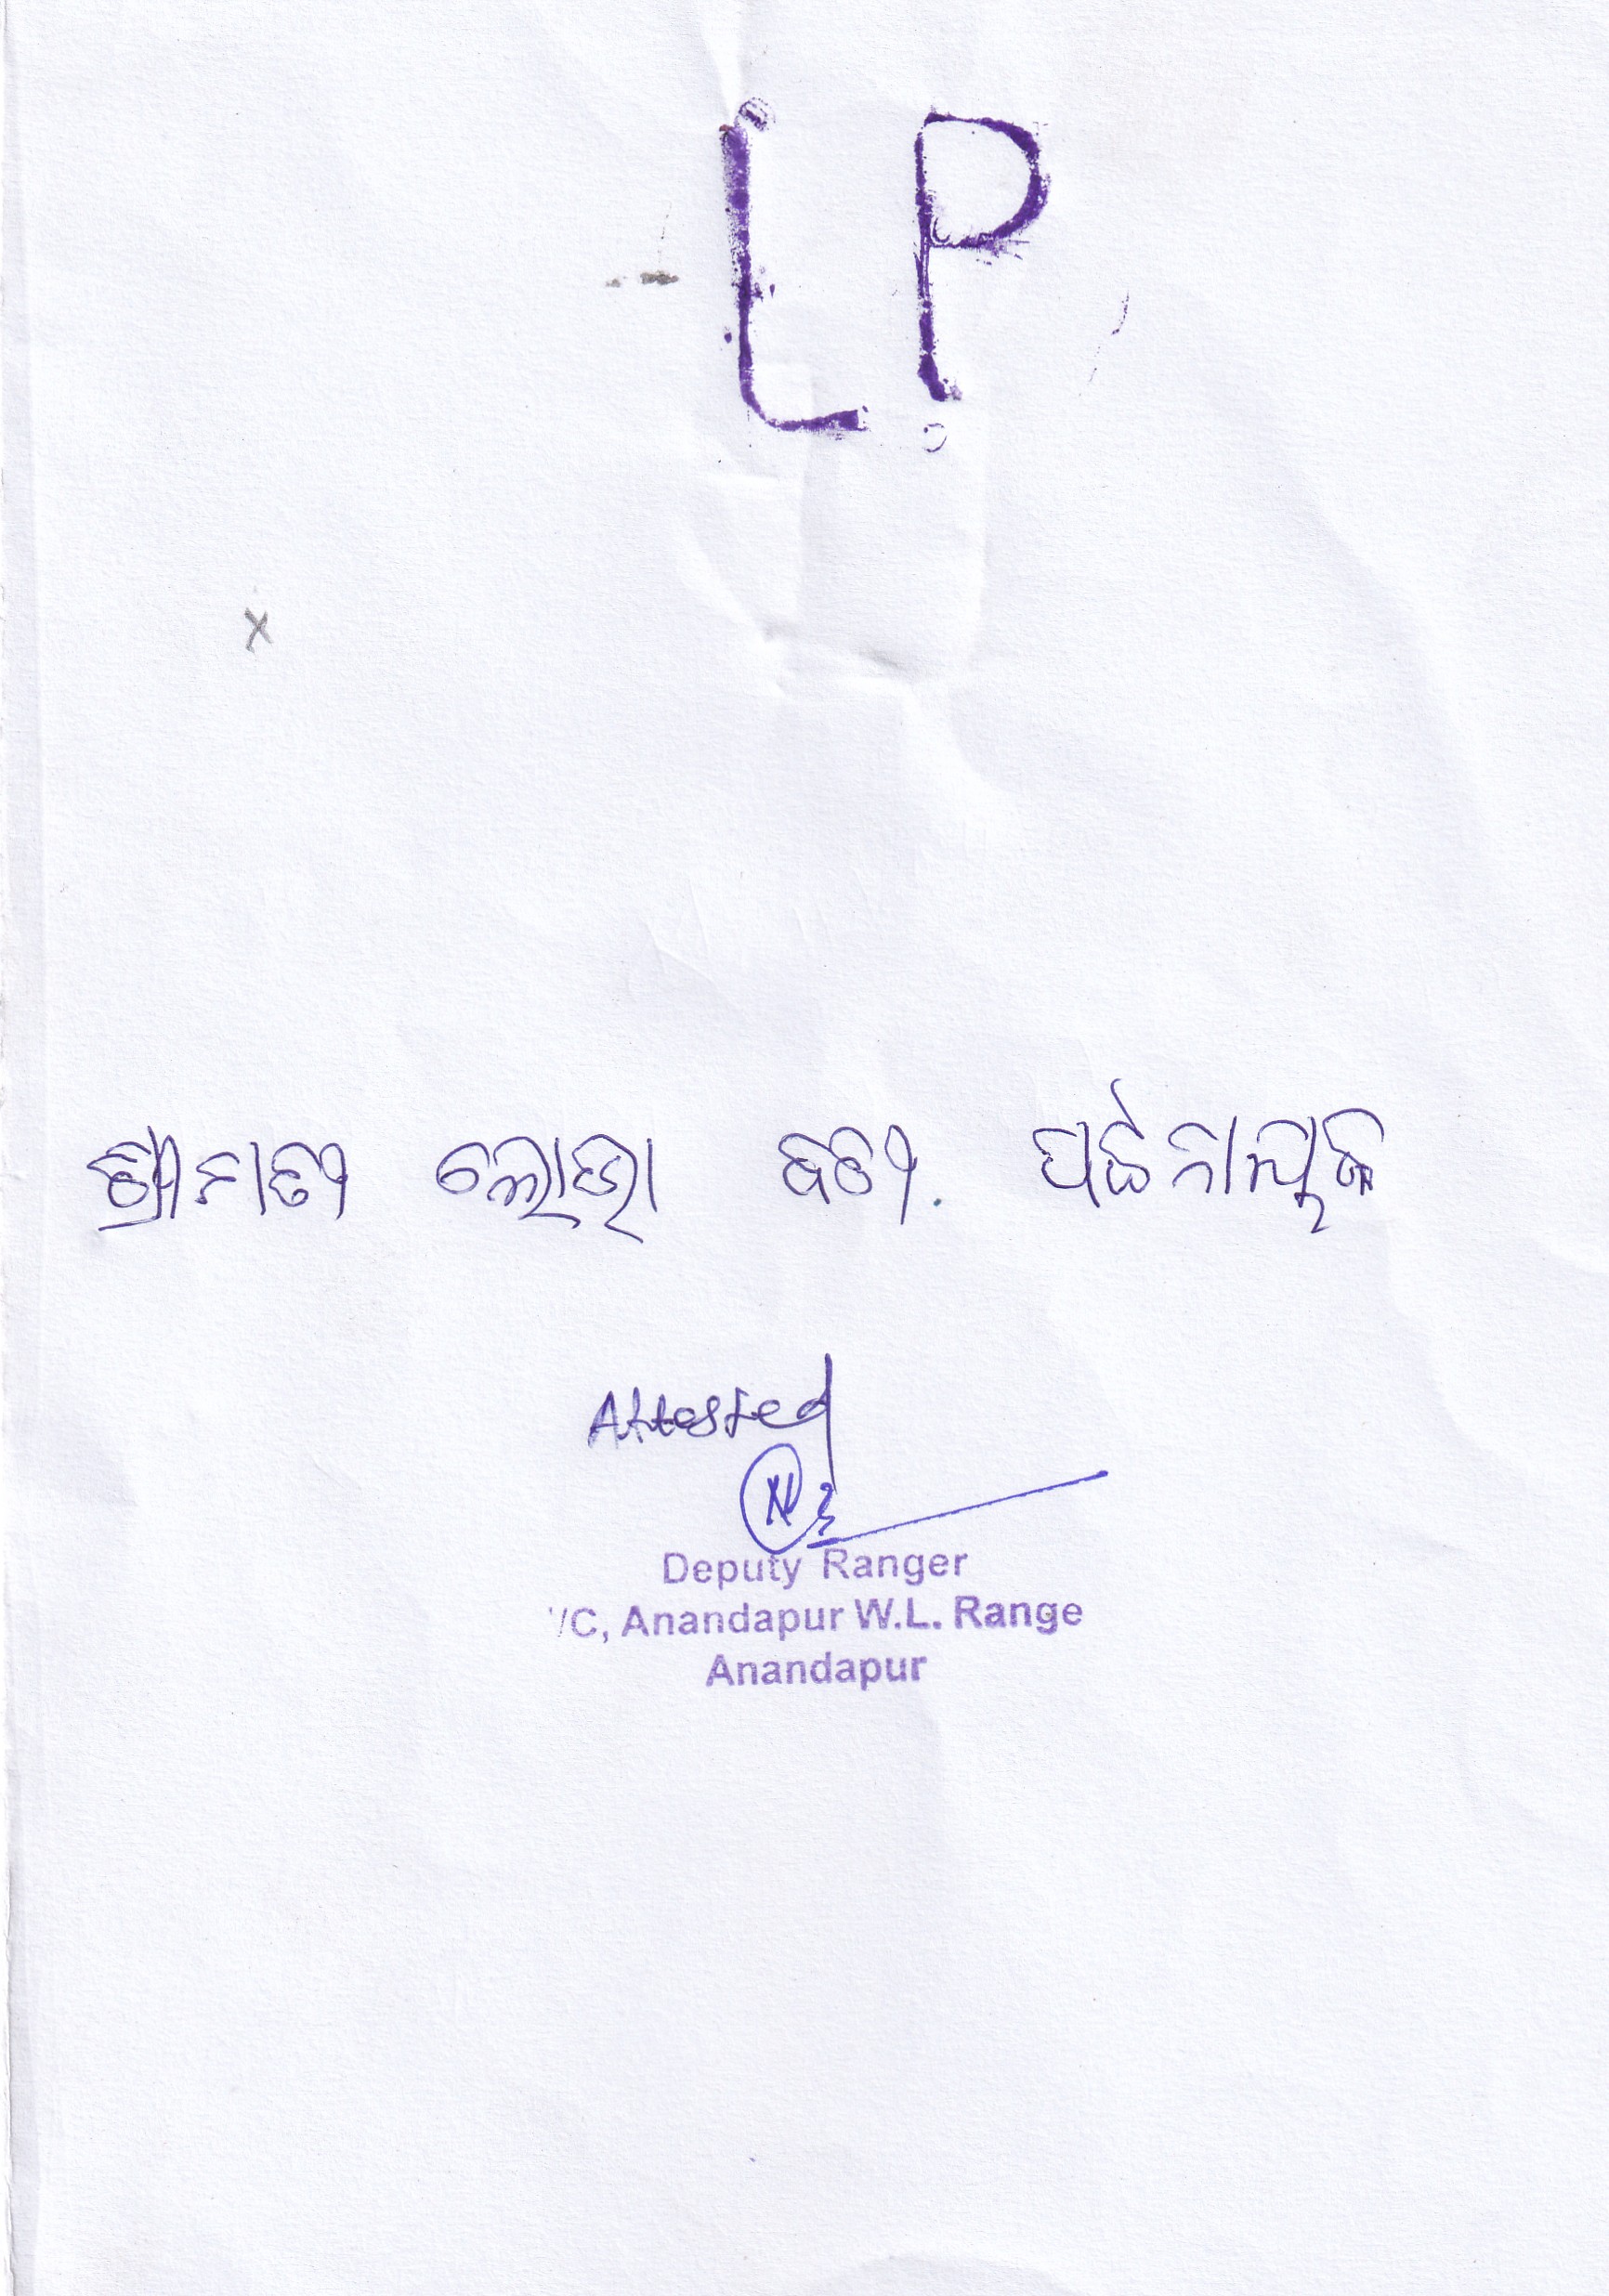 LP
x
ଶ୍ରୀମତୀ ଲୋପା ବତୀ. ପଟ୍ଟନାୟକ
Attested
Deputy Ranger
/C, Anandapur W.L. Range
Anandapur